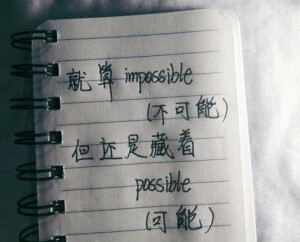 就算 impossible
(不可能)
但还是藏着
possible
(可能)